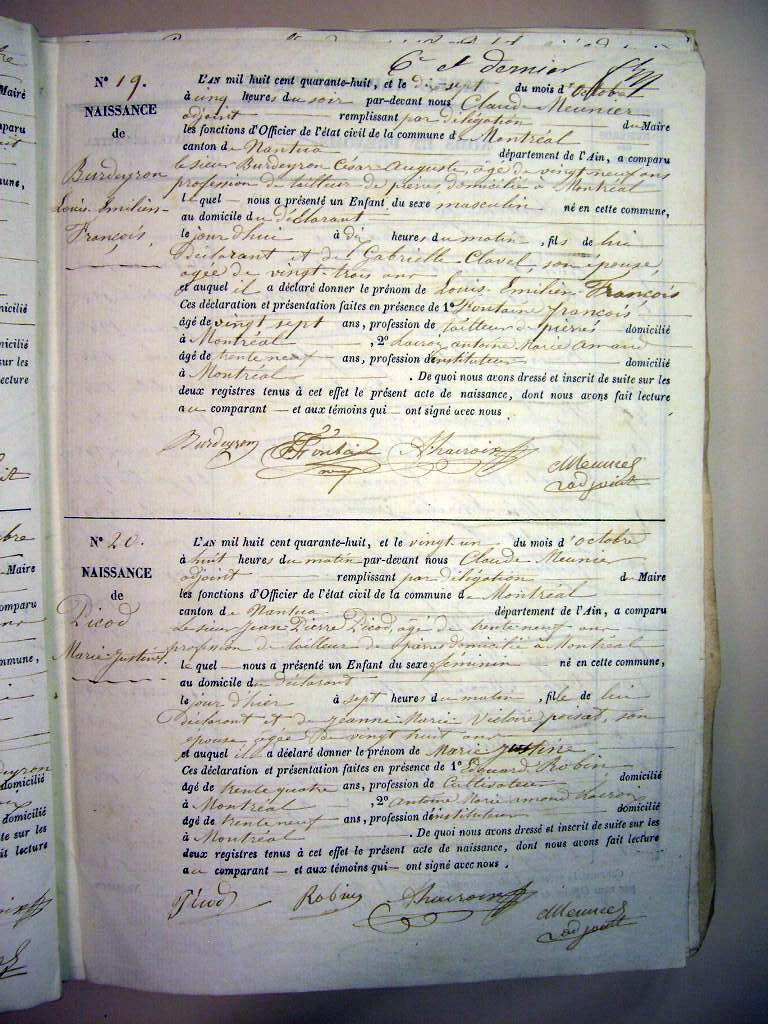 6e et dernier
N° 19.
NAISSANCE
de
Burdeyron
Louis-Emilien-
François.
L'AN mil huit cent quarante-huit, et le dix sept du mois d'octobre
à cinq heures du soir par-devant nous Claude Meunier
adjoint remplissant par déligation du Maire
les fonctions d'Officier de l'état civil de la commune de Montréal
canton de Nantua département de l'Ain, a comparu
le sieur Burdeyron César Auguste, âgé de vingt neuf ans
profession de tailleur de pierres domicilié à Montréal
le quel — nous a présenté un Enfant du sexe masculin né en cette commune,
au domicile du déclarant
le jour d'hui à dix heures du matin, fils de lui
Déclarant et de Gabrielle Clavel, son épouse,
agée de vingt-trois ans
et auquel il a déclaré donner le prénom de Louis-Emilien-François
Ces déclaration et présentation faites en présence de 1° Fontaine françois
âgé de vingt sept ans, profession de tailleur de pierres domicilié
à Montréal , 2° antoine Marie amand
âgé de trente neuf ans, profession d'instituteur domicilié
à Montréal . De quoi nous avons dressé et inscrit de suite sur les
deux registres tenus à cet effet le présent acte de naissance, dont nous avons fait lecture
au comparant — et aux témoins qui — ont signé avec nous
Burdeyron
CMeunier
adjoint
N° 20.
NAISSANCE
de
Picod
Marie-Justine.
L'AN mil huit cent quarante-huit, et le vingt-un du mois d'octobre
à huit heures du matin par-devant nous Claude Meunier
adjoint remplissant par déligation du Maire
les fonctions d'Officier de l'état civil de la commune de Montréal
canton de Nantua département de l'Ain, a comparu
Le sieur Jean Pierre Picod, âgé de trente neuf ans
profession de tailleur de pierres domicilié à Montréal
le quel — nous a présenté un Enfant du sexe féminin né en cette commune,
au domicile du déclarant
le jour d'hier à sept heures du matin, fille de lui
déclarant et de Jeanne-Marie Victoire poisat, son
épouse agée de vingt huit ans
et auquel il a déclaré donner le prénom de Marie Justine
Ces déclaration et présentation faites en présence de 1° Edouard Robin
âgé de trente quatre ans, profession de Cultivateur domicilié
à Montréal , 2° Antoine Marie amand
âgé de trente neuf ans, profession d'instituteur domicilié
à Montréal . De quoi nous avons dressé et inscrit de suite sur les
deux registres tenus à cet effet le présent acte de naissance, dont nous avons fait lecture
au comparant — et aux témoins qui — ont signé avec nous.
Picod Robin
CMeunier
adjoint